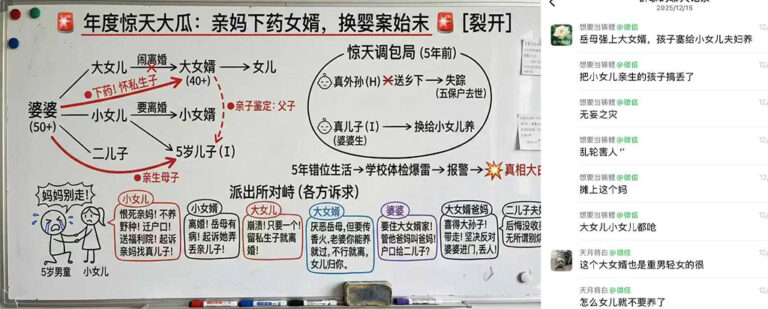 🚨年度惊天大瓜：亲妈下药女婿，换婴案始末🚨[裂开]
大女儿
闹离婚
大女婿
(40+)
女儿
下药！怀私生子
婆婆
(50+)
小女儿
要离婚
小女婿
亲子鉴定：父子
二儿子
5岁儿子(I)
亲生母子
惊天调包局(5年前)
真外孙(H)
送乡下
失踪
(五保户去世)
真儿子(I)
(婆婆生)
换给小女儿养
5年错位生活→学校体检爆雷→报警→💥真相大白
派出所对峙(各方诉求)
妈妈别走！
5岁男童
小女儿
小女儿
恨死亲妈！不养
野种！迁户口！
送福利院！起诉
亲妈找真儿子！
小女婿
离婚！岳母有
病！起诉她弄
丢亲儿子！
大女儿
崩溃！只要一个！
留私生子就离
婚！
大女婿
厌恶岳母，但要传
香火，老婆你能养
就过，不行就离，
女儿归你。
婆婆
要住大女婿家！
管他爸妈叫爸妈！
户口给二儿子？
大女婿爸妈
喜得大孙子！
带走！坚决反对
婆婆进门，丢人！
二儿子夫
后悔没收
无所谓别
2025/12/15
想要当锦鲤@微信
岳母强上大女婿，孩子塞给小女儿夫妇养
想要当锦鲤@微信
把小女儿亲生的孩子搞丢了
想要当锦鲤@微信
无妄之灾
想要当锦鲤@微信
乱轮害人“
想要当锦鲤@微信
摊上这个妈
想要当锦鲤@微信
大女儿小女儿都呛
天月将白@微信
这个大女婿也是重男轻女的很
天月将白@微信
怎么女儿就不要养了